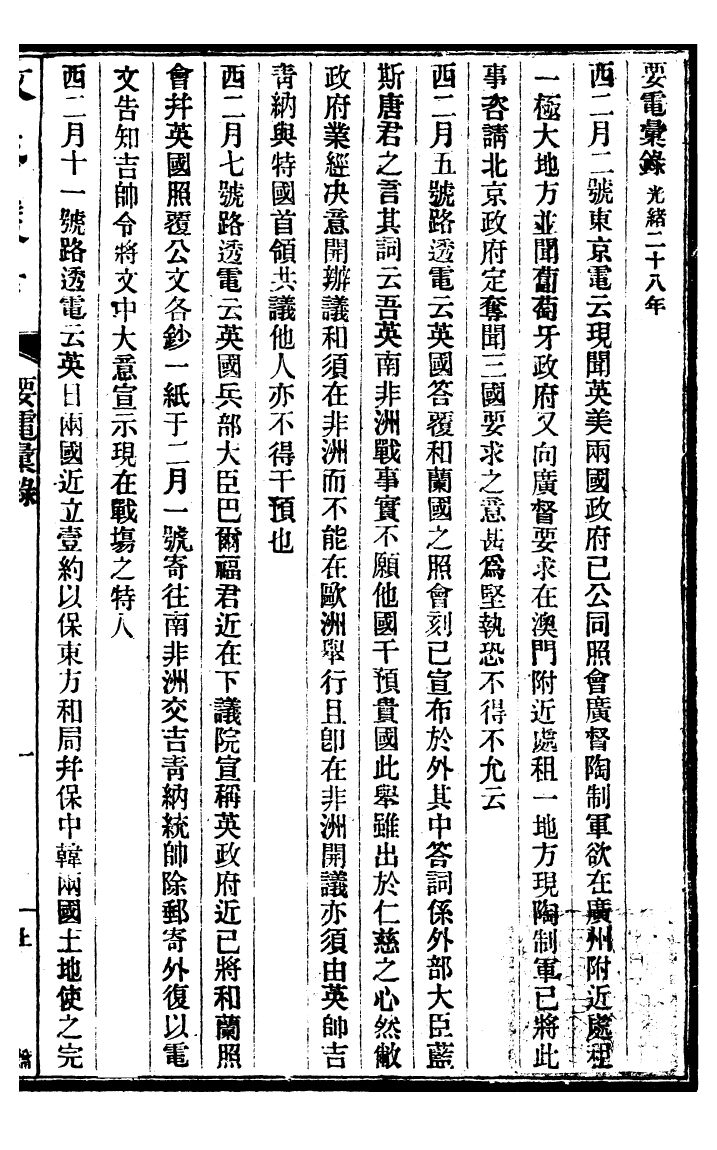 要電彙錄 光緒二十八年
西二月二號東京電云現聞英美兩國政府已公同照會廣督陶制軍欲在廣州附近處租
一極大地方並聞葡萄牙政府又向廣督要求在澳門附近處租一地方現陶制軍已將此
事咨請北京政府定奪聞三國要求之意甚爲堅執恐不得不允云
西二月五號路透電云英國答覆和蘭國之照會刻已宣布於外其中答詞係外部大臣藍
斯唐君之言其詞云吾英南非洲戰事實不願他國干預貴國此舉雖出於仁慈之心然敝
政府業經決意開辦議和須在非洲而不能在歐洲舉行且卽在非洲開議亦須由英帥吉
靑納與特國首領共議他人亦不得干預也
西二月七號路透電云英國兵部大臣巴爾福君近在下議院宣稱英政府近已將和蘭照
會幷英國照覆公文各鈔一紙于二月一號寄往南非洲交吉靑納統帥除郵寄外復以電
文告知吉帥令將文中大意宣示現在戰塲之特人
西二月十一號路透電云英日兩國近立壹約以保東方和局幷保中韓兩國土地使之完
要電彙錄
一